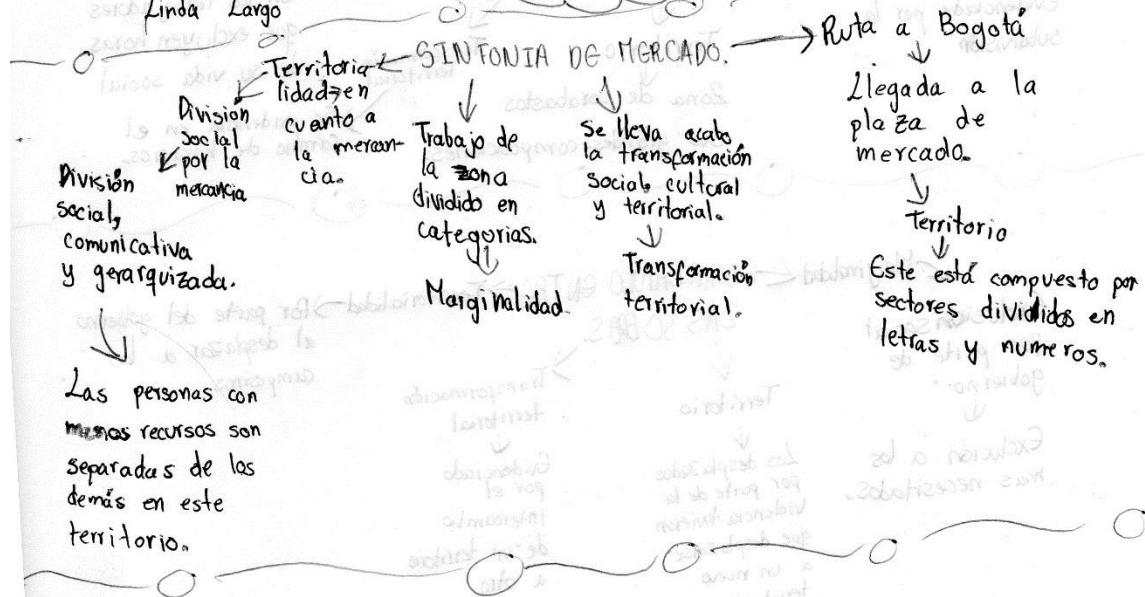 Linda Largo
SINFONIA DE MERCADO.
Territoria
lidad en
cuanto a
la mercan-
cia.
División
social
por la
mercancia
División
social,
comunicativa
y gerarquizada.
Las personas con
menos recursos son
separadas de los
demás en este
territorio.
Trabajo de
la zona
dividido en
categorias.
Marginalidad.
Se lleva acabo
la transformación
social, cultural
y territorial.
Transformación
territorial.
Ruta a Bogotá
Llegada a la
plaza de
mercado.
Territorio
Este está compuesto por
sectores divididos en
letras y numeros.